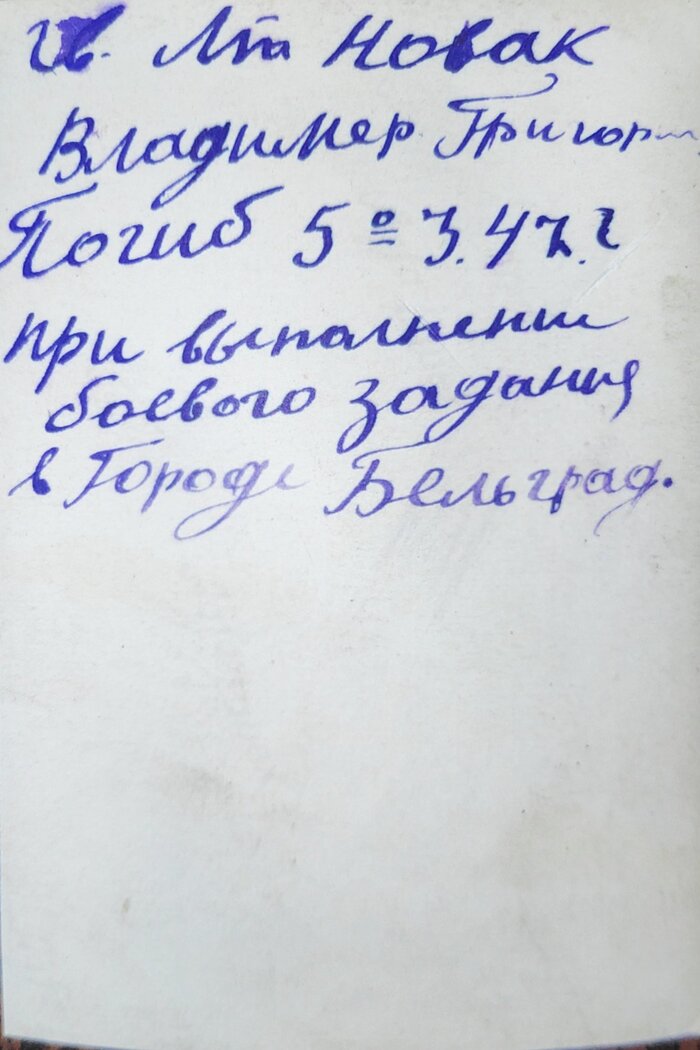 гв. Л-т Новак
Владимер Григор
Погиб 5º 3.47.г
при выполнении
боевого задания
в Городе Бельград.